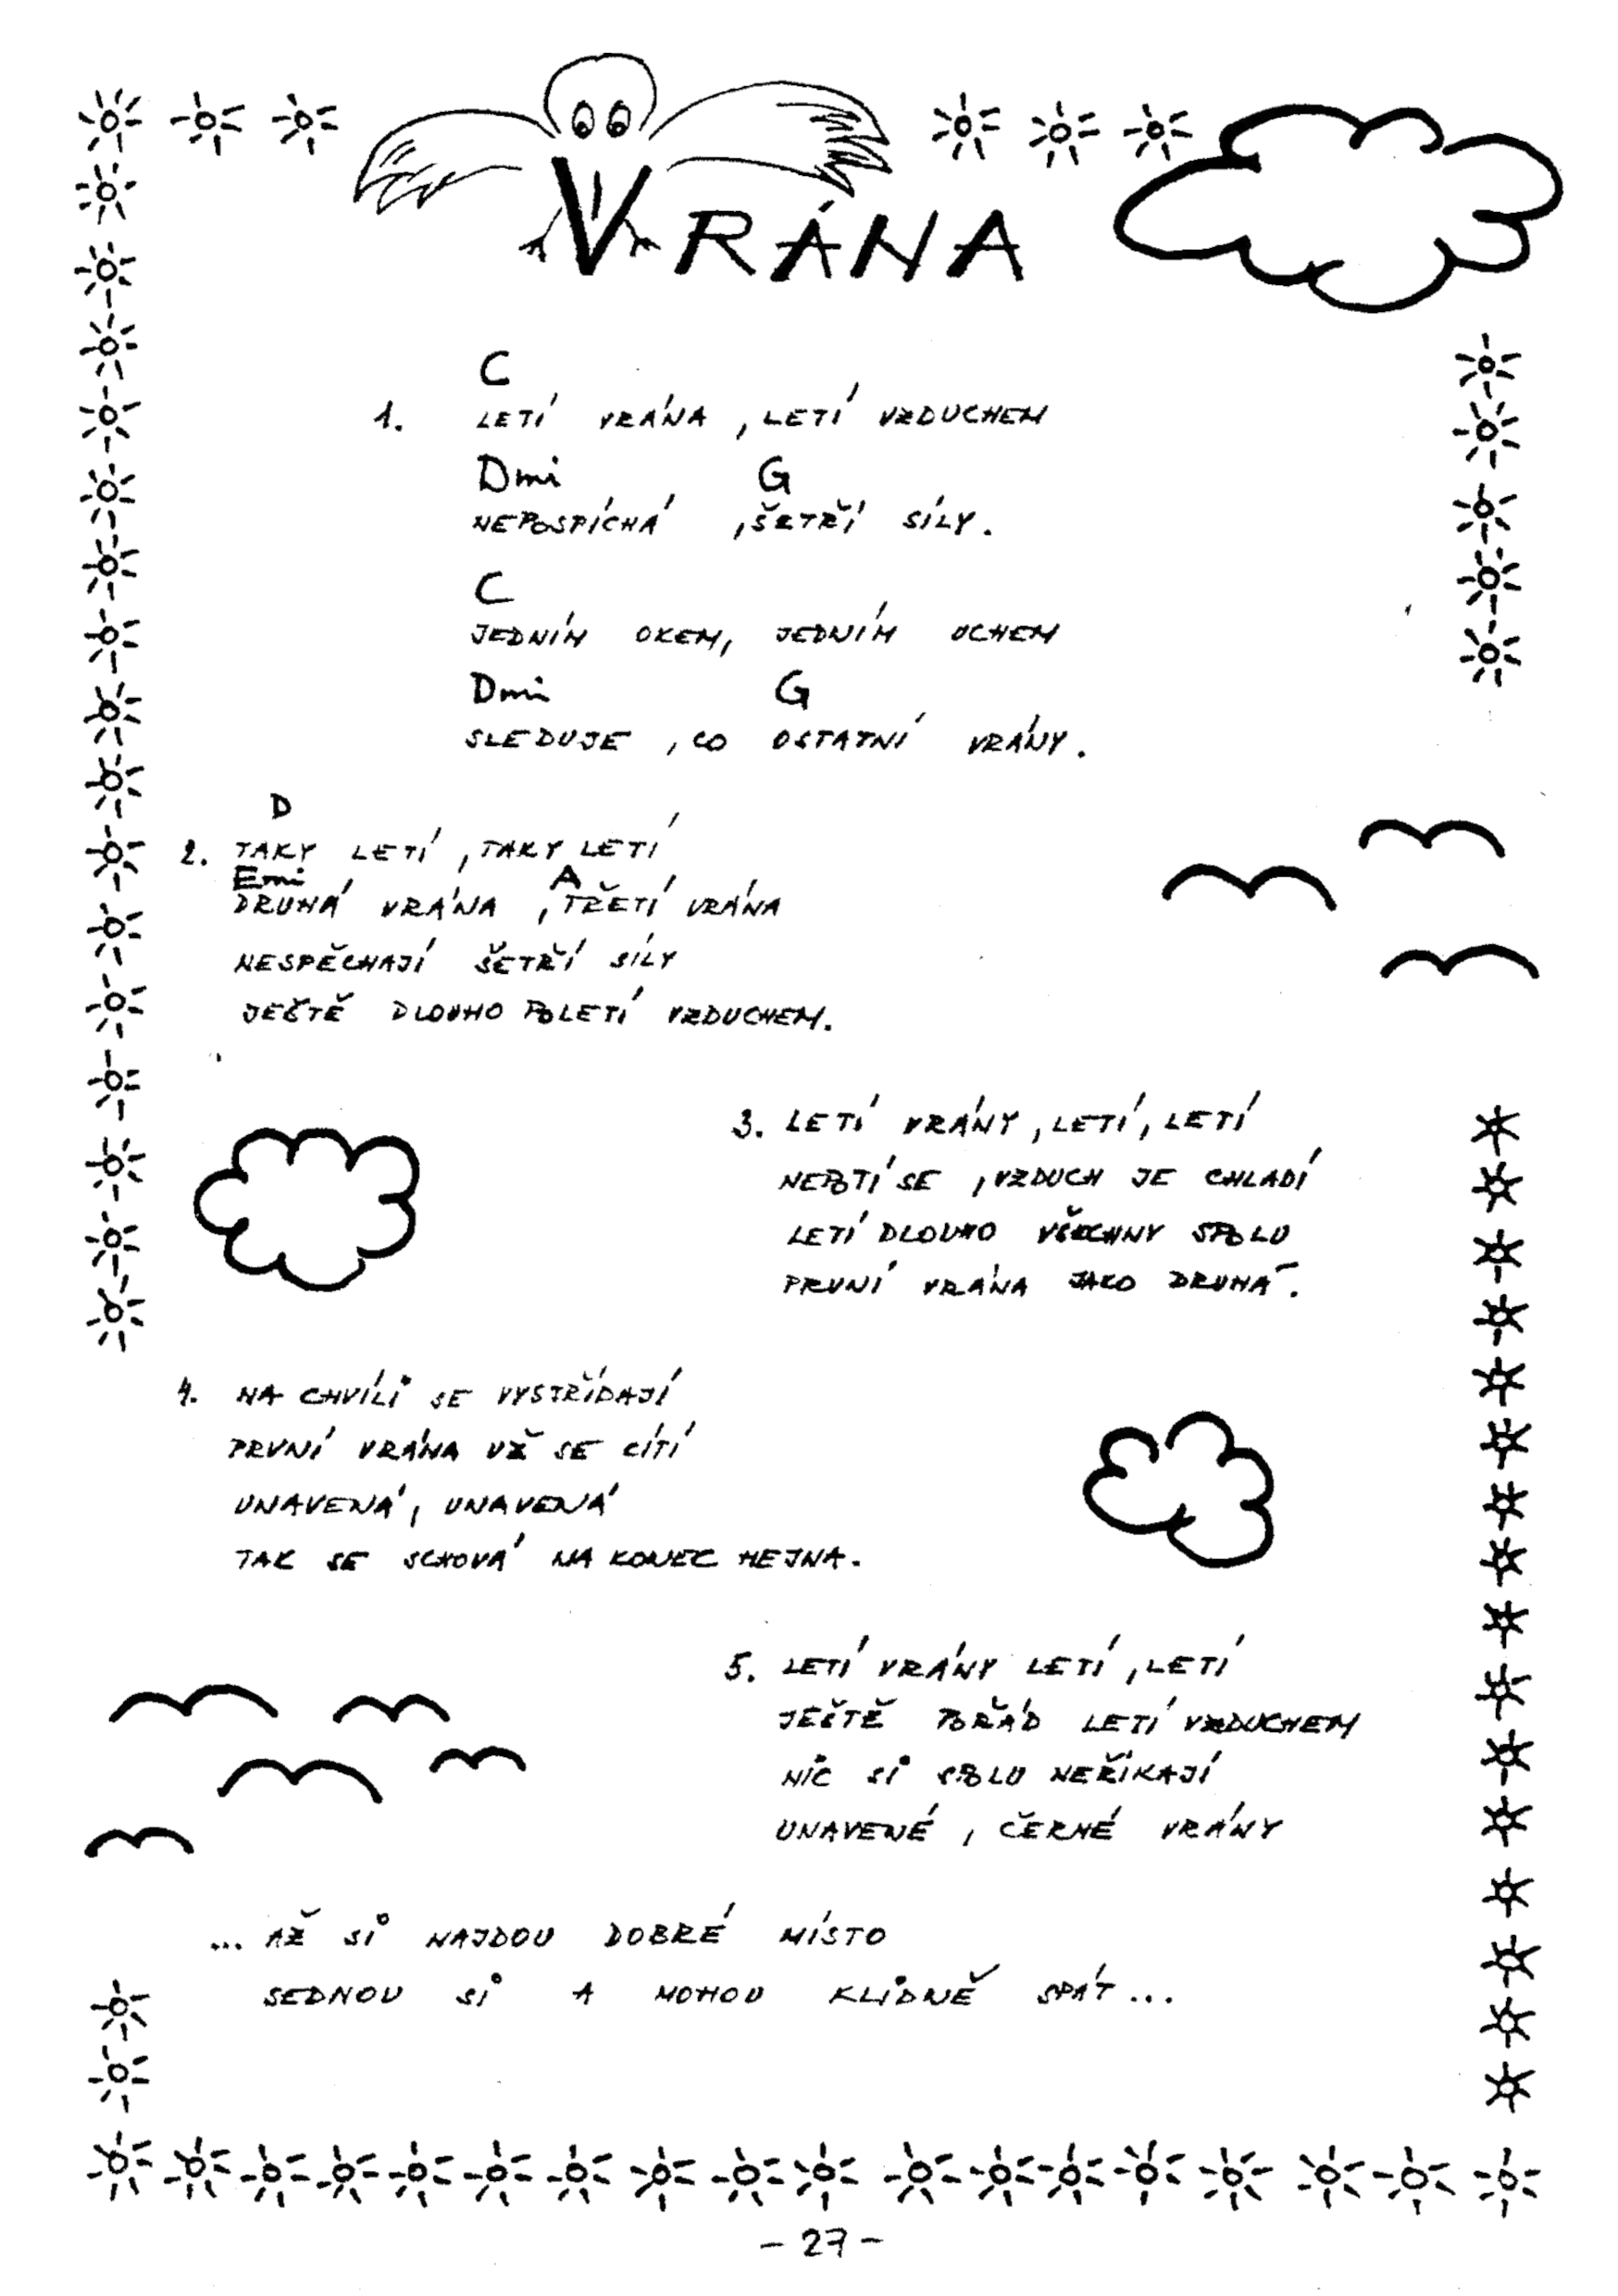 VRÁNA
C
1. LETÍ VRÁNA, LETÍ VZDUCHEM
Dmi G
NEPOSPÍCHÁ, ŠETŘÍ SÍLY.
C
JEDNÍM OKEM, JEDNÍM UCHEM
Dmi G
SLEDUJE, CO OSTATNÍ VRÁNY.
D
2. TAKY LETÍ, TAKY LETÍ
Emi A
DRUHÁ VRÁNA, TŘETÍ VRÁNA
NESPĚCHAJÍ ŠETŘÍ SÍLY
JEŠTĚ DLOUHO POLETÍ VZDUCHEM.
3. LETÍ VRÁNY, LETÍ, LETÍ
NEPOTÍ SE, VZDUCH JE CHLADÍ
LETÍ DLOUHO VŠECHNY SPOLU
PRVNÍ VRÁNA JAKO DRUHÁ.
4. NA CHVÍLI SE VYSTŘÍDAJÍ
PRVNÍ VRÁNA UŽ SE CÍTÍ
UNAVENÁ, UNAVENÁ
TAK SE SCHOVÁ NA KONEC HEJNA.
5. LETÍ VRÁNY LETÍ, LETÍ
JEŠTĚ POŘÁD LETÍ VZDUCHEM
NIC SI SPOLU NEŘÍKAJÍ
UNAVENÉ, ČERNÉ VRÁNY
... AŽ SI NAJDOU DOBRÉ MÍSTO
SEDNOU SI A MOHOU KLIDNĚ SPÁT...
- 27 -